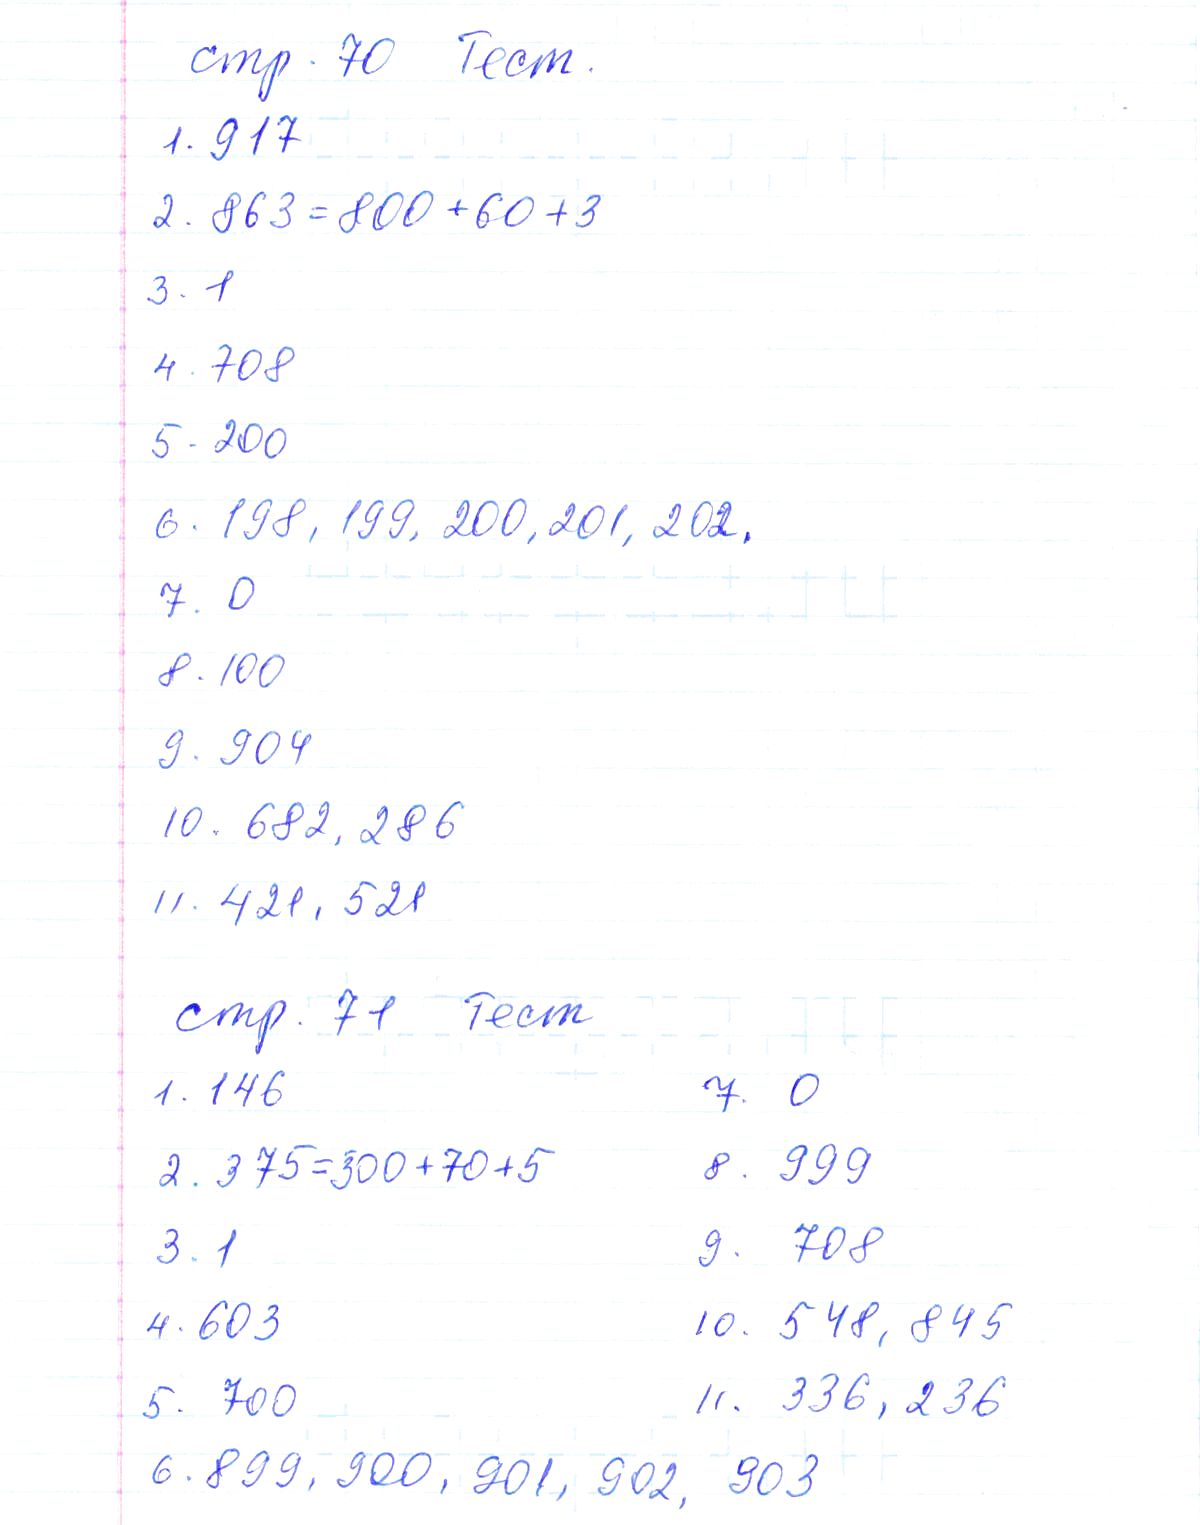 стр. 70 Тест.
1. 917
2. 863 = 800 + 60 + 3
3. 1
4. 708
5. 200
6. 198, 199, 200, 201, 202.
7. 0
8. 100
9. 904
10. 682, 286
11. 421, 521
стр. 71 Тест
1. 146
2. 375 = 300 + 70 + 5
3. 1
4. 603
5. 700
6. 899, 900, 901, 902, 903
7. 0
8. 999
9. 708
10. 548, 845
11. 336, 236